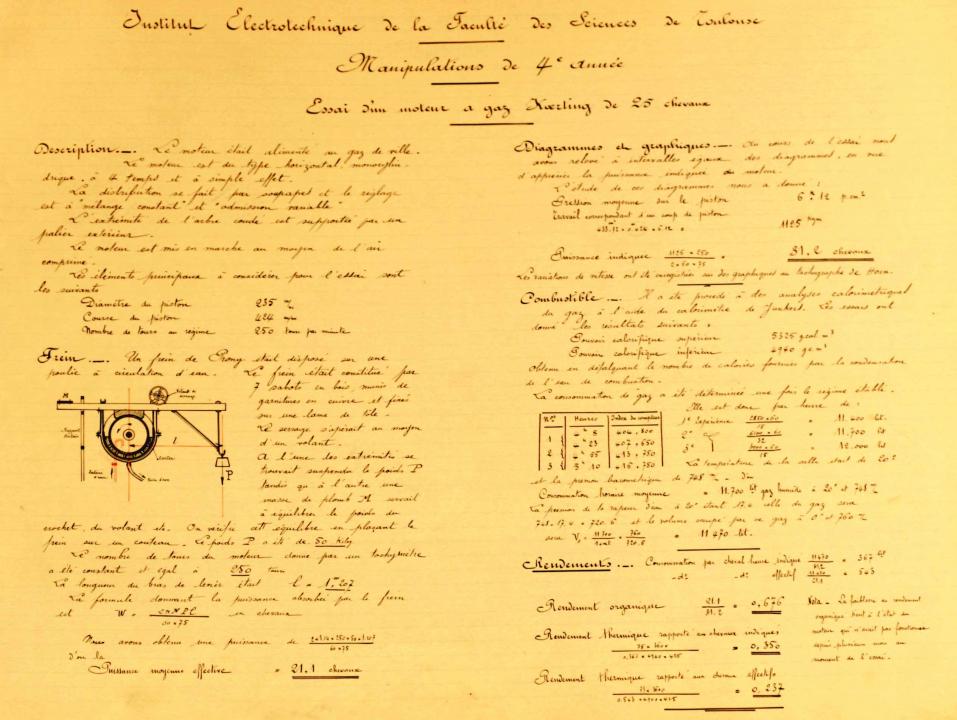 Institut Électrotechnique de la Faculté des Sciences de Toulouse
Manipulations de 4e année
Essai d'un moteur a gaz Kœrting de 25 chevaux
Description._. Le moteur était alimenté au gaz de ville.
Le moteur est du type horizontal, monocylin-
drique, à 4 temps et à simple effet.
La distribution se fait par soupapes et le réglage
est à "mélange constant" et "admission variable"
L'extrémité de l'arbre coudé est supportée par un
palier extérieur.
Le moteur est mis en marche au moyen de l'air
comprimé.
Les éléments principaux à considérer pour l'essai sont
les suivants
Diamètre du piston 235 m/m
Course du piston 424 m/m
Nombre de tours au régime 250 tours par minute
Frein._. Un frein de Prony était disposé sur une
poulie à circulation d'eau. Le frein était constitué par
7 sabots en bois munis de
garnitures en cuivre et fixés
sur une lame de tôle.
Le serrage s'opérait au moyen
d'un volant.
A l'une des extrémités se
trouvait suspendu le poids P
tandis qu'à l'autre une
masse de plomb M servait
à équilibrer le poids du
M
l
P
crochet, du volant etc. On vérifie cet équilibre en plaçant le
frein sur un couteau. Le poids P a été de 50 kilog
Le nombre de tours du moteur donné par un tachymètre
a été constant et égal à 250 tours
La longueur du bras de levier était l = 1m,207
La formule donnant la puissance absorbée par le frein
est W = 2πNPl / 60 × 75 en chevaux
Nous avons obtenu une puissance de 2×3,14×250×50×1.207 / 60×75
d'où la
Puissance moyenne effective = 21,1 chevaux
Diagrammes et graphiques._. Au cours de l'essai nous
avons relevé à intervalles égaux des diagrammes, en vue
d'apprécier la puissance indiquée du moteur.
L'étude de ces diagrammes nous a donné :
Pression moyenne sur le piston 6k 12 p. cm²
Travail correspondant d'un coup de piston
433.12 × 0.424 × 6.12 = 1125 kgm
Puissance indiquée 1125 × 250 / 2 × 60 × 75 = 31,2 chevaux
Les variations de vitesse ont été enregistrées sur des graphiques au tachographe de Horn.
Combustible._. Il a été procédé à des analyses calorimétriques
du gaz à l'aide du calorimètre de Junkers. Les essais ont
donné les résultats suivants :
Pouvoir calorifique supérieur 5325 gcal m³
Pouvoir calorifique inférieur 4940 gc m³
obtenu en défalquant le nombre de calories fournies par la condensation
de l'eau de combustion.
La consommation de gaz a été déterminée une fois le régime établi.
Elle est donc par heure de :
Nos Heures Index du compteur
1 8 404,800
23 407,650
2 55 413,750
3 10 416,750
1e Expérience 2850×60 / 15 = 11.400 lit.
2e 32 = 11.700 lit
3e 3000×60 / 15 = 12.000 lit
La température de la salle était de 20°
et la pression barométrique de 748 m/m d'où
Consommation horaire moyenne = 11.700 lit gaz humide à 20° et 748 m/m
La pression de la vapeur d'eau à 20° étant 17,4 celle du gaz sera
748-17,4 = 720.6 et le volume occupé par ce gaz à 0° et 760 m/m
sera = 11 470 lit.
Rendements._. Consommation par cheval heure indiqué 11470 / 31.2 = 367 lit
_d°_ _d°_ effectif 11470 / 21.1 = 543
Rendement organique 21.1 / 31.2 = 0,676
Nota._ La faiblesse du rendement
organique tient à l'état du
moteur qui n'avait pas fonctionné
depuis plusieurs mois au
moment de l'essai.
Rendement thermique rapporté en chevaux indiqués
75 × 3600 / 0,367 × 4940 × 425 = 0,350
Rendement thermique rapporté aux chevaux effectifs
75 × 3600 / 0.543 × 4900 × 425 = 0,237